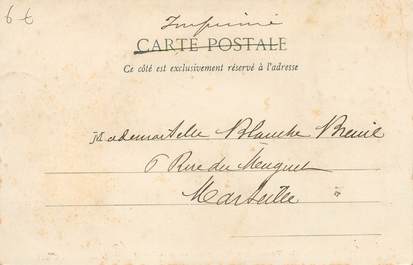 6 €
Imprimé
CARTE POSTALE
Ce côté est exclusivement réservé à l'adresse
Mademoiselle Blanche Breuil
6 Rue du Muguet
Marseille